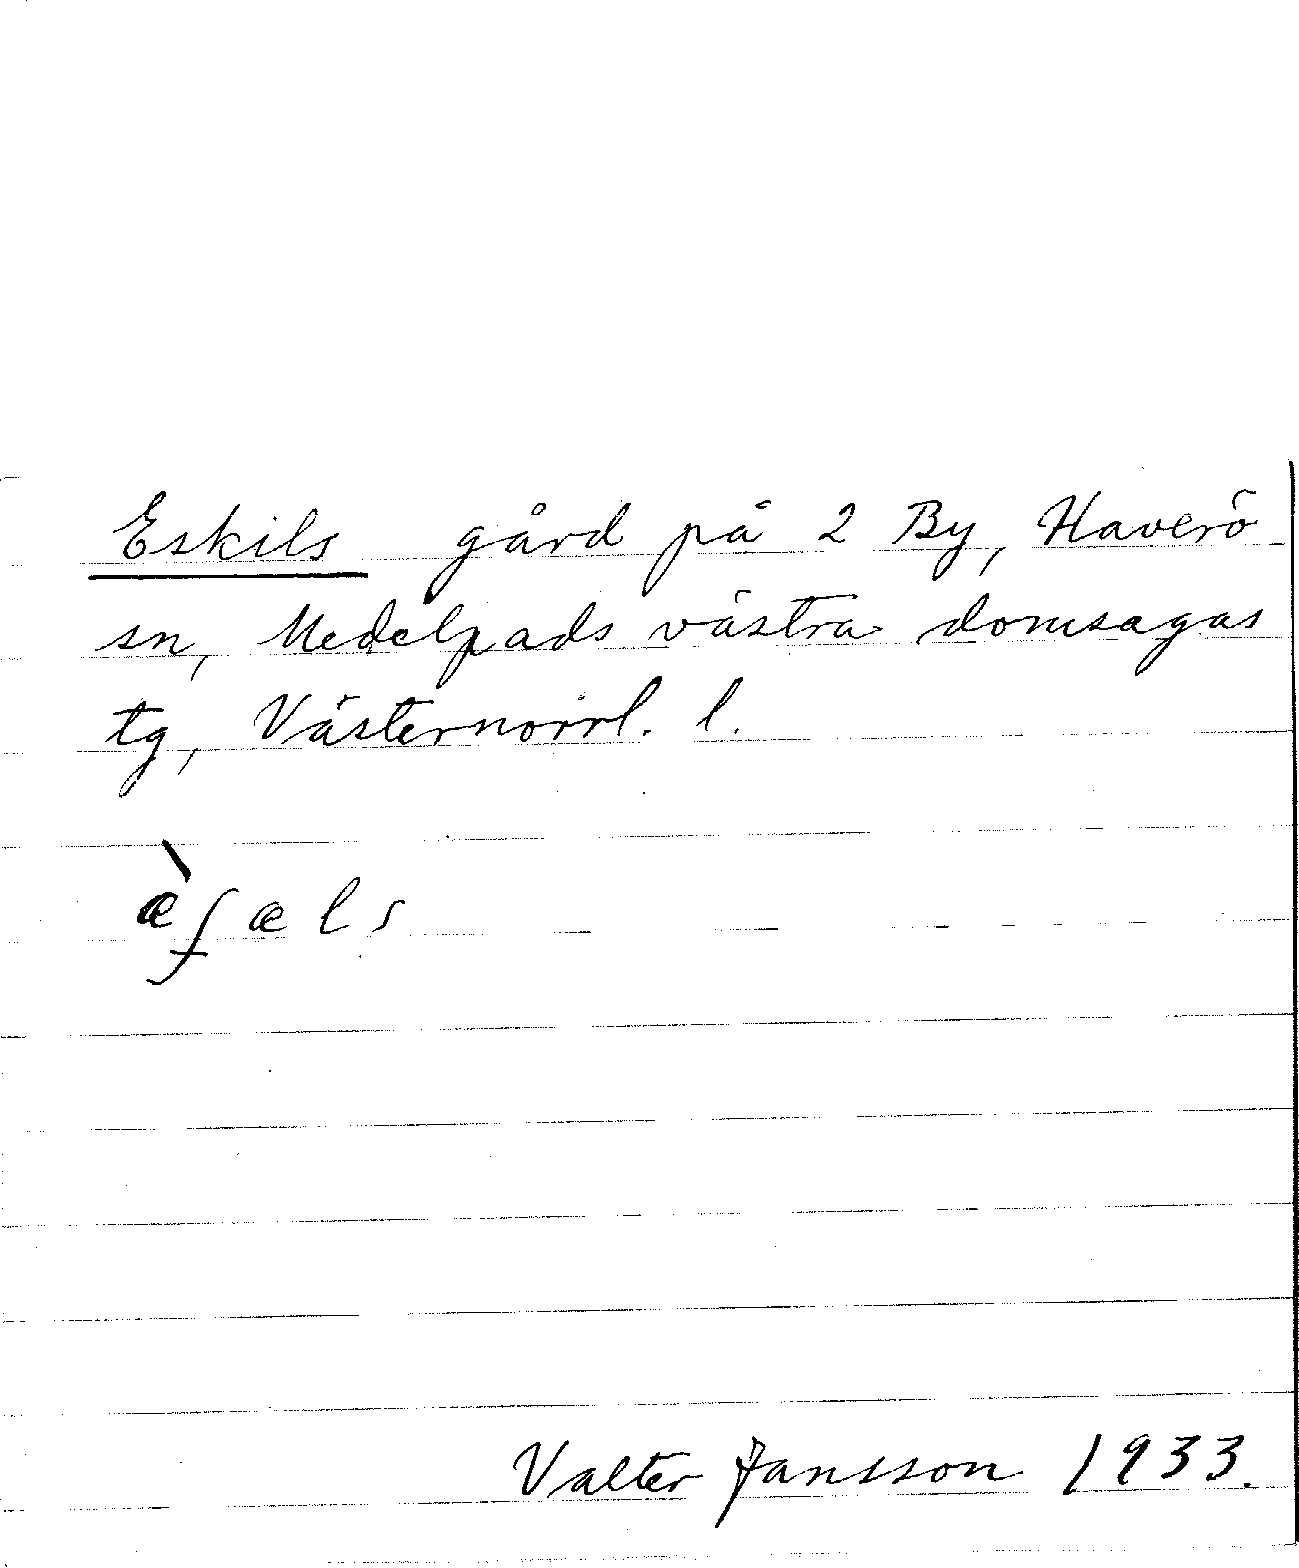 Eskils gård på 2 By, Haverö
sn, Medelpads västra domsagas
tg, Västernorrl. l.
æ̀ʃæls
Valter Jansson 1933.